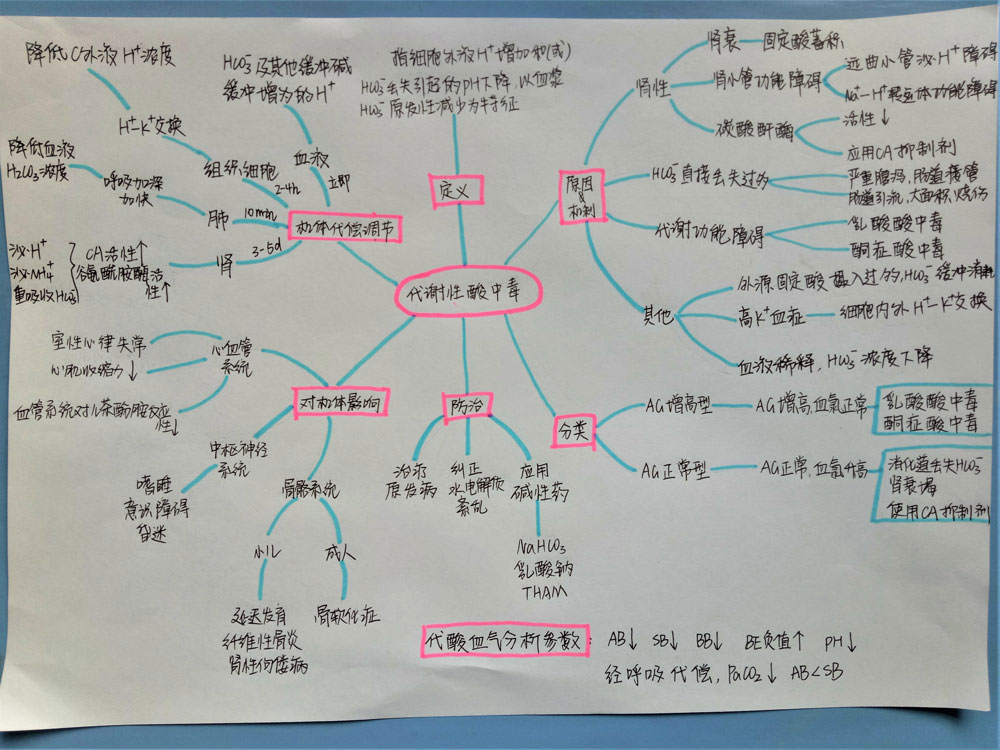 代谢性酸中毒
定义
指细胞外液H⁺增加和(或)
HCO₃⁻丢失引起的PH下降,以血浆
HCO₃⁻原发性减少为特征
原因
&
机制
肾性
肾衰
固定酸蓄积
肾小管功能障碍
远曲小管泌H⁺障碍
Na⁺—H⁺转运体功能障碍
碳酸酐酶
活性↓
应用CA抑制剂
HCO₃⁻直接丢失过多
严重腹泻,肠道瘘管
肠道引流,大面积烧伤
代谢功能障碍
乳酸酸中毒
酮症酸中毒
其他
外源固定酸摄入过多,HCO₃⁻缓冲消耗
高K⁺血症
细胞内外H⁺—K⁺交换
血液稀释,HCO₃⁻浓度下降
分类
AG增高型
AG增高,血氯正常
乳酸酸中毒
酮症酸中毒
AG正常型
AG正常,血氯升高
消化道丢失HCO₃⁻
肾衰竭
使用CA抑制剂
防治
治疗
原发病
纠正
水电解质
紊乱
应用
碱性药
NaHCO₃
乳酸钠
THAM
对机体影响
心血管
系统
室性心律失常
心肌收缩力↓
血管系统对儿茶酚胺反应
性↓
中枢神经
系统
嗜睡
意识障碍
昏迷
骨骼系统
小儿
延迟发育
纤维性骨炎
肾性佝偻病
成人
骨软化症
机体代偿调节
血液
立即
HCO₃⁻及其他缓冲碱
缓冲增加的H⁺
组织细胞
2-4h
H⁺-K⁺交换
降低C外液H⁺浓度
肺
10min
呼吸加深
加快
降低血液
H₂CO₃浓度
肾
3-5d
CA活性↑
谷氨酰胺酶活
性↑
泌H⁺
泌NH₄⁺
重吸收HCO₃⁻
代酸血气分析参数: AB↓ SB↓ BB↓ BE负值↑ PH↓
经呼吸代偿,PaCO₂↓ AB<SB